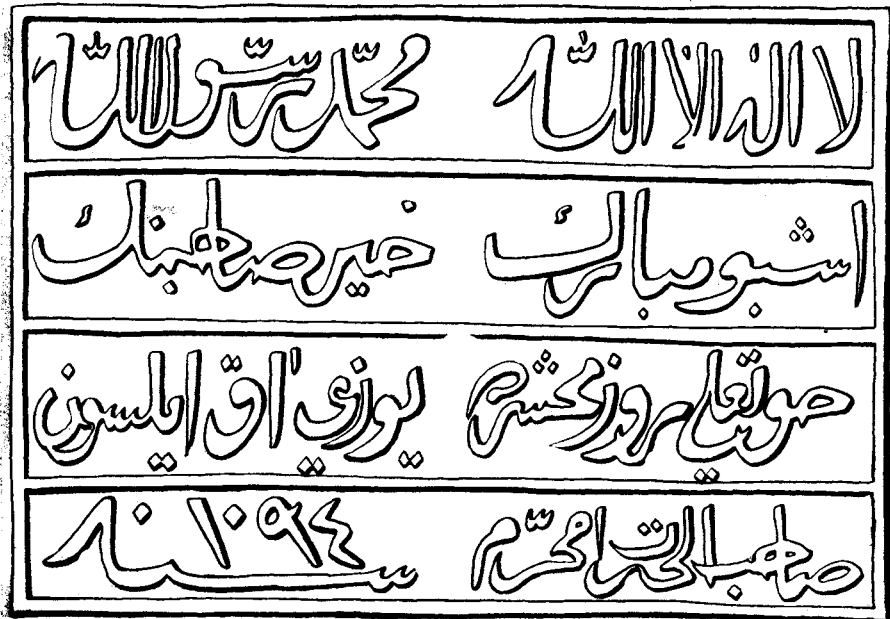 لا اله الا الله محمد رسول الله
اشبو مبارك خير صاهبنك
روز محشرم يوزي اق ايلسون
صاهب الخرات محرم سنه ١٠٩٤